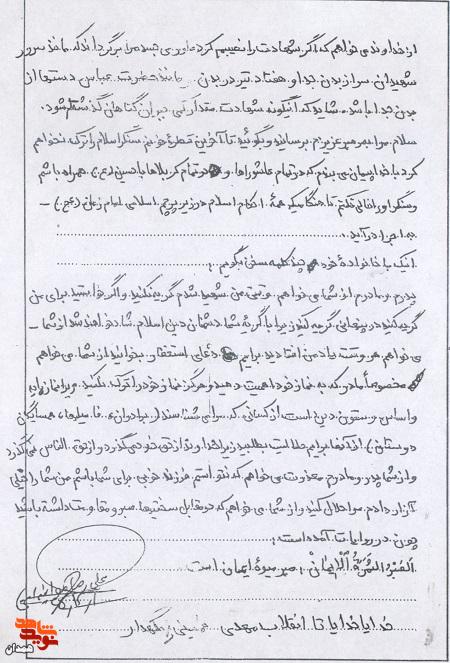 از خداوند می خواهم که اگر شهادت را نصیبم کرده آوری جسد مرا برگرداند که مانند سرور
شهیدان، سر از بدن جدا و هفتاد تیر در بدن مانند حضرت عباس دستها از
بدن جدا باشد. شاید که اینگونه شهادت مقداری جبران گناهان گذشته ام شود.
سلام مرا به رهبر عزیزم برسانید و بگوئید تا آخرین قطرهٔ خونم سنگر اسلام را ترک نخواهم
کرد با خدا پیمان می بندم که در تمام عاشوراها و در تمام کربلاها با حسین (ع) همراه باشم
و سنگر او را خالی نکنم تا هنگامیکه همهٔ احکام اسلام در زیر پرچم اسلامی امام زمان (عج) -
به اجرا درآید.
اینک با خانوادهٔ خود چند کلمه سخن بگویم:
پدرم و مادرم از شما می خواهم وقتی من شهید شدم گریه نکنید و اگر خواستید برای من
گریه کنید در پنهانی گریه کنید زیرا با گریه شما دشمنان دین اسلام، شاد خواهند شد از شما -
می خواهم هر وقت به یاد من افتادید برایم دعای استغفار بخوانید از شما می خواهم
مخصوصاً مادر که به نماز خود اهمیت دهید و هرگز نماز خود را ترک نکنید زیرا نماز پایه
و اساس و ستون دین است از کسانی که مرا می شناسند (برادران، فامیلها، همسایگان
دوستان) از آنها برایم حلالیت بطلبید زیرا خداوند از حق خود می گذرد و از حق الناس نمی گذرد
و از شما پدر و مادرم معذرت می خواهم که نتوانستم فرزند خوبی برای شما باشم من شما را خیلی
آزار دادم مرا حلال کنید و از شما می خواهم که در مقابل سختیها صبر و مقاومت داشته باشید
چون در روایات آمده است:
الصَبرُ الثَمَرَةُ الْاِیمٰانْ: صبر میوهٔ ایمان است
خدایا خدایا تا انقلاب مهدی خمینی را نگهدار